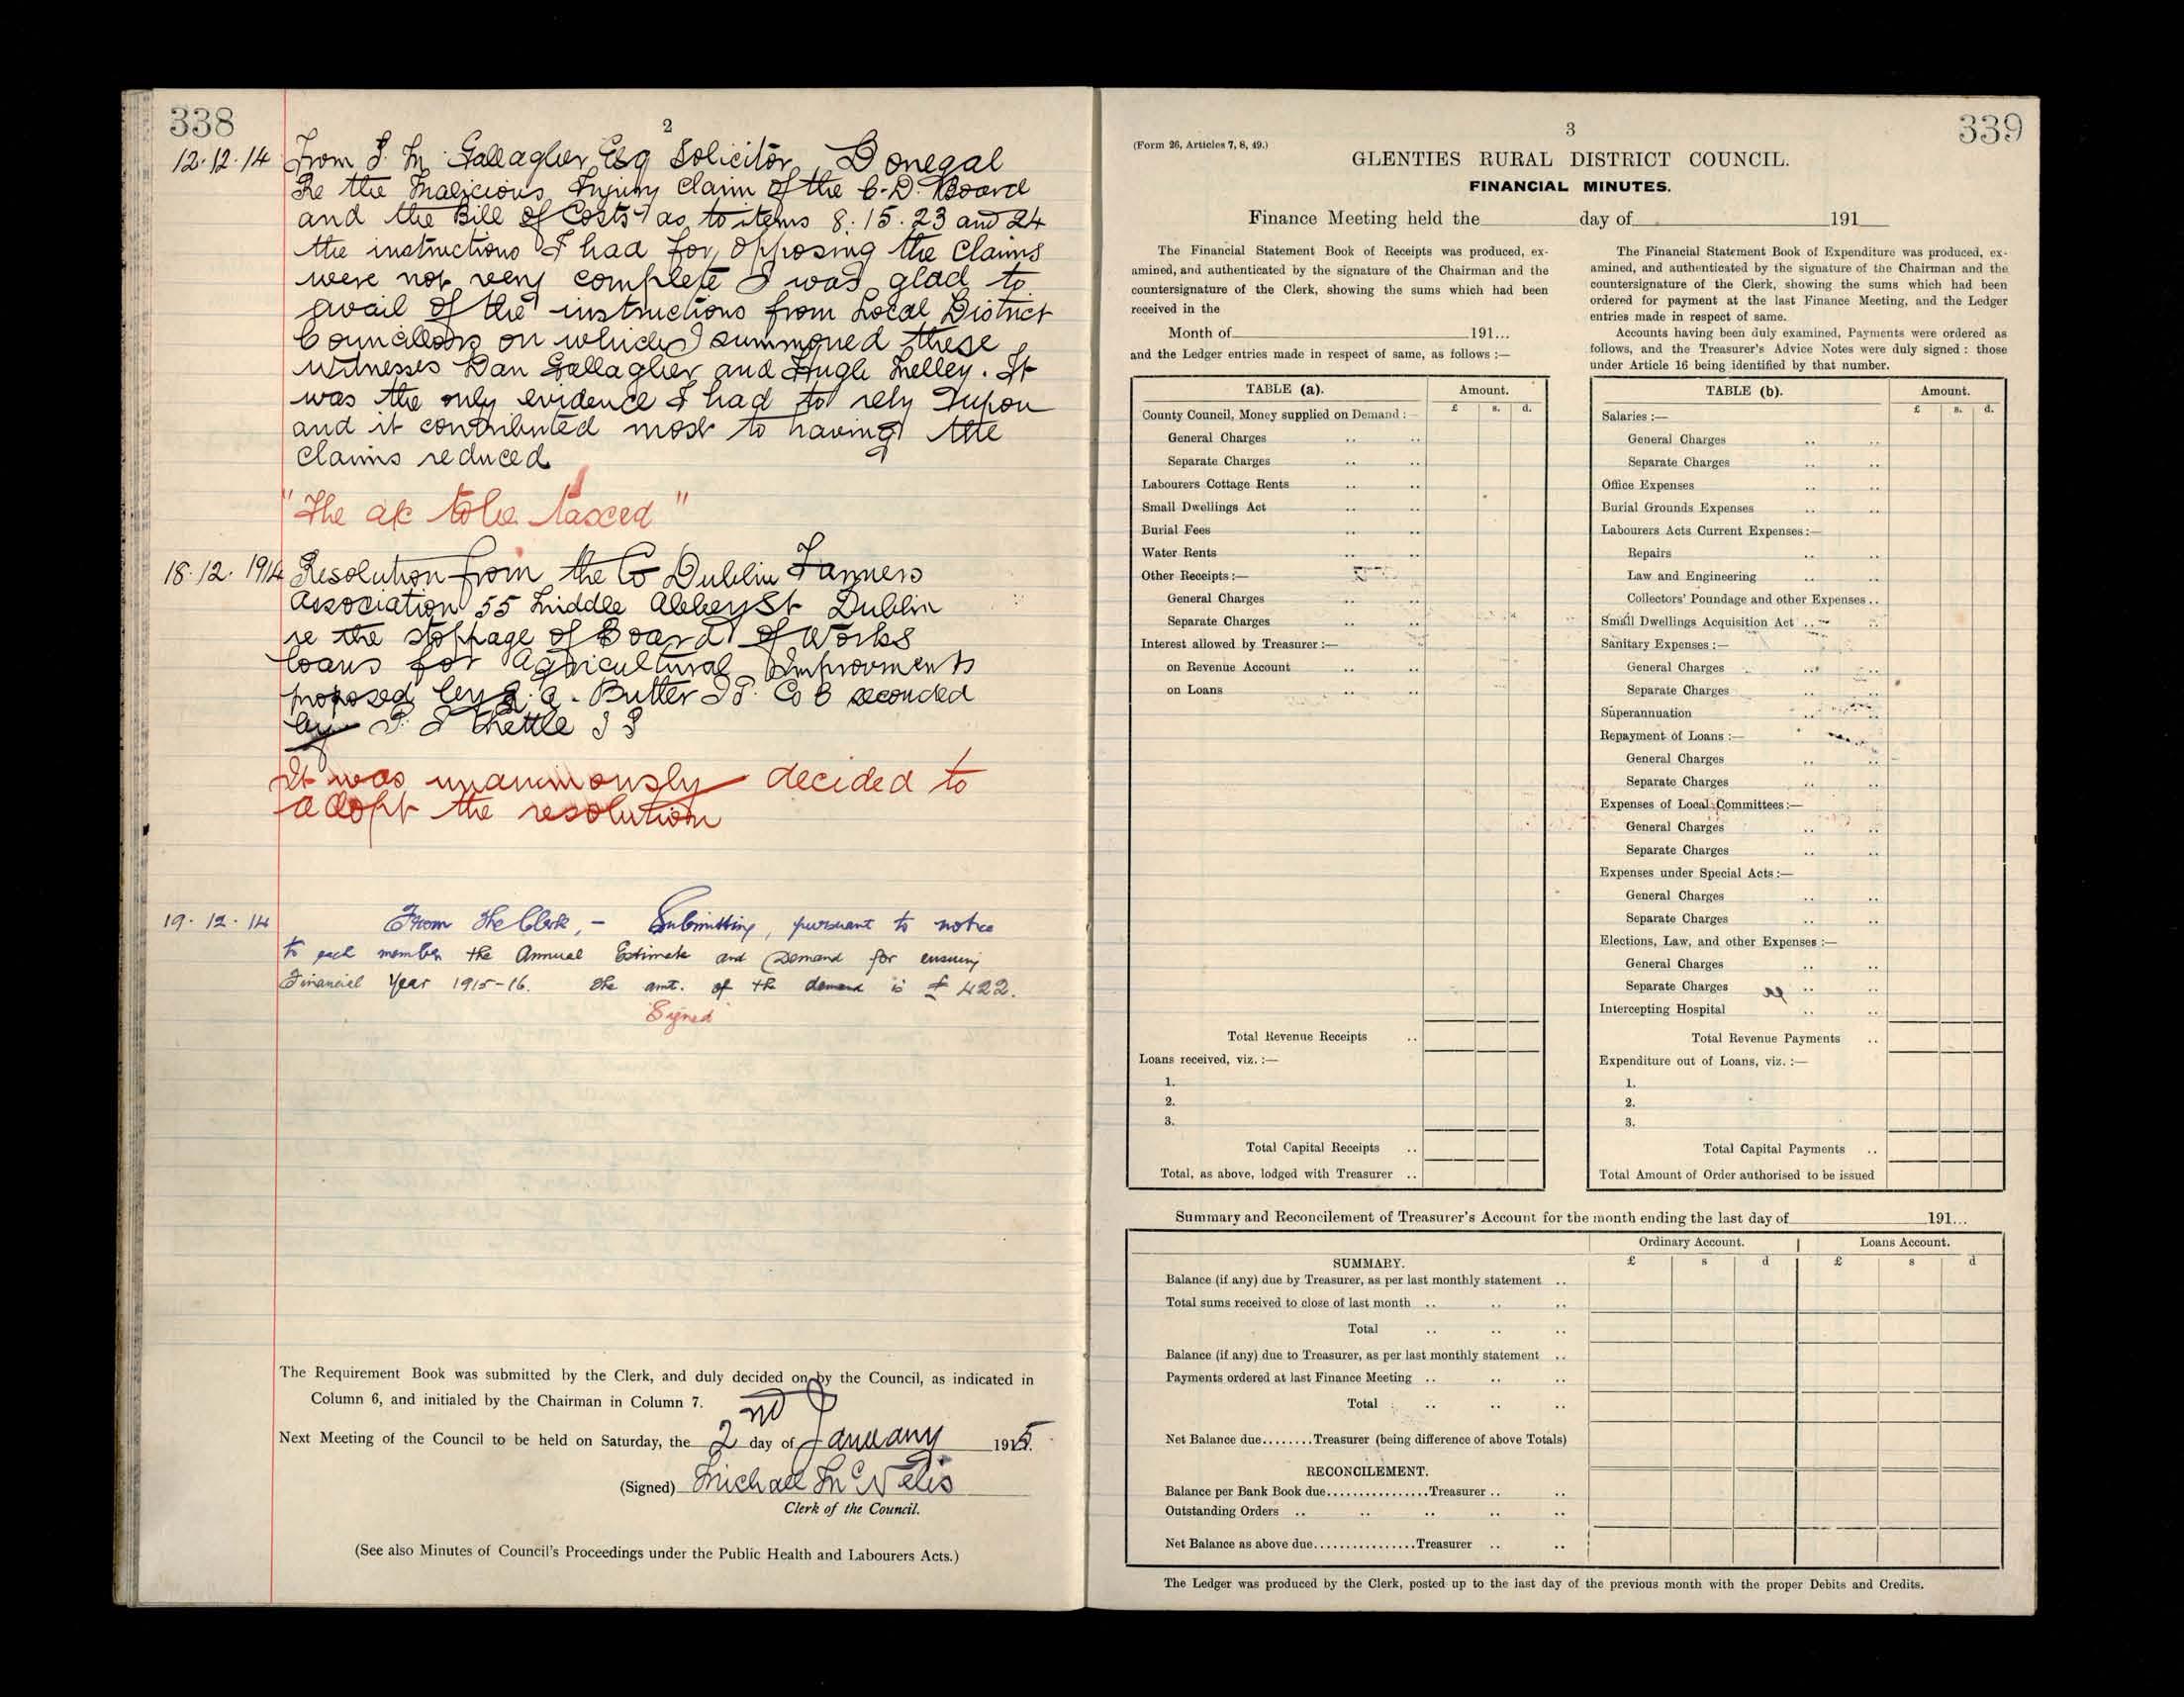 338
2
12.12.14 From J. M. Gallagher Esq Solicitor, Donegal
Re the Malicious Injury Claim of the C.D. Board
and the Bill of Costs as to items 8.15.23 and 24
the instructions I had for opposing the Claims
were not very complete I was glad to
avail of the instructions from Local District
Councillors on which I summoned these
witnesses Dan Gallagher and Hugh Melley. It
was the only evidence I had to rely upon
and it contributed most to having the
claims reduced
"The a/c to be taxed"
18.12.1914 Resolution from the Co Dublin Farmers
Association 55 Middle Abbey St Dublin
re the stoppage of Board of Works
loans for Agricultural Improvments
proposed by a. Butler J.P. Co C seconded
by P. J Kettle J P
It was unanimously decided to
adopt the resolution
19.12.14 From the Clerk, - Submitting, pursuant to notice
to each member the Annual Estimate and Demand for ensuing
Financial Year 1915-16. The amt. of the demand is £422.
Signed
The Requirement Book was submitted by the Clerk, and duly decided on by the Council, as indicated in
Column 6, and initialed by the Chairman in Column 7.
Next Meeting of the Council to be held on Saturday, the 2nd day of January 1915.
(Signed) Michael McNelis
Clerk of the Council.
(See also Minutes of Council's Proceedings under the Public Health and Labourers Acts.)
3
339
(Form 26, Articles 7, 8, 49.)
GLENTIES RURAL DISTRICT COUNCIL.
FINANCIAL MINUTES.
Finance Meeting held the day of 191
The Financial Statement Book of Receipts was produced, ex-
amined, and authenticated by the signature of the Chairman and the
countersignature of the Clerk, showing the sums which had been
received in the
Month of 191...
and the Ledger entries made in respect of same, as follows :—
TABLE (a). Amount.
£ s. d.
County Council, Money supplied on Demand :—
General Charges .. ..
Separate Charges .. ..
Labourers Cottage Rents .. ..
Small Dwellings Act .. ..
Burial Fees .. ..
Water Rents .. ..
Other Receipts :—
General Charges .. ..
Separate Charges .. ..
Interest allowed by Treasurer :—
on Revenue Account .. ..
on Loans .. ..
Total Revenue Receipts ..
Loans received, viz. :—
1.
2.
3.
Total Capital Receipts ..
Total, as above, lodged with Treasurer ..
The Financial Statement Book of Expenditure was produced, ex-
amined, and authenticated by the signature of the Chairman and the
countersignature of the Clerk, showing the sums which had been
ordered for payment at the last Finance Meeting, and the Ledger
entries made in respect of same.
Accounts having been duly examined, Payments were ordered as
follows, and the Treasurer's Advice Notes were duly signed : those
under Article 16 being identified by that number.
TABLE (b). Amount.
£ s. d.
Salaries :—
General Charges .. ..
Separate Charges .. ..
Office Expenses .. ..
Burial Grounds Expenses .. ..
Labourers Acts Current Expenses :—
Repairs .. ..
Law and Engineering .. ..
Collectors' Poundage and other Expenses ..
Small Dwellings Acquisition Act .. ..
Sanitary Expenses :—
General Charges .. ..
Separate Charges .. ..
Superannuation .. ..
Repayment of Loans :—
General Charges .. ..
Separate Charges .. ..
Expenses of Local Committees :—
General Charges .. ..
Separate Charges .. ..
Expenses under Special Acts :—
General Charges .. ..
Separate Charges .. ..
Elections, Law, and other Expenses :—
General Charges .. ..
Separate Charges .. ..
Intercepting Hospital .. ..
Total Revenue Payments ..
Expenditure out of Loans, viz. :—
1.
2.
3.
Total Capital Payments ..
Total Amount of Order authorised to be issued
Summary and Reconcilement of Treasurer's Account for the month ending the last day of 191...
Ordinary Account. Loans Account.
SUMMARY. £ s d £ s d
Balance (if any) due by Treasurer, as per last monthly statement ..
Total sums received to close of last month .. .. ..
Total .. .. ..
Balance (if any) due to Treasurer, as per last monthly statement ..
Payments ordered at last Finance Meeting .. .. ..
Total .. .. ..
Net Balance due........Treasurer (being difference of above Totals)
RECONCILEMENT.
Balance per Bank Book due................Treasurer .. ..
Outstanding Orders .. .. .. .. ..
Net Balance as above due................Treasurer .. ..
The Ledger was produced by the Clerk, posted up to the last day of the previous month with the proper Debits and Credits.